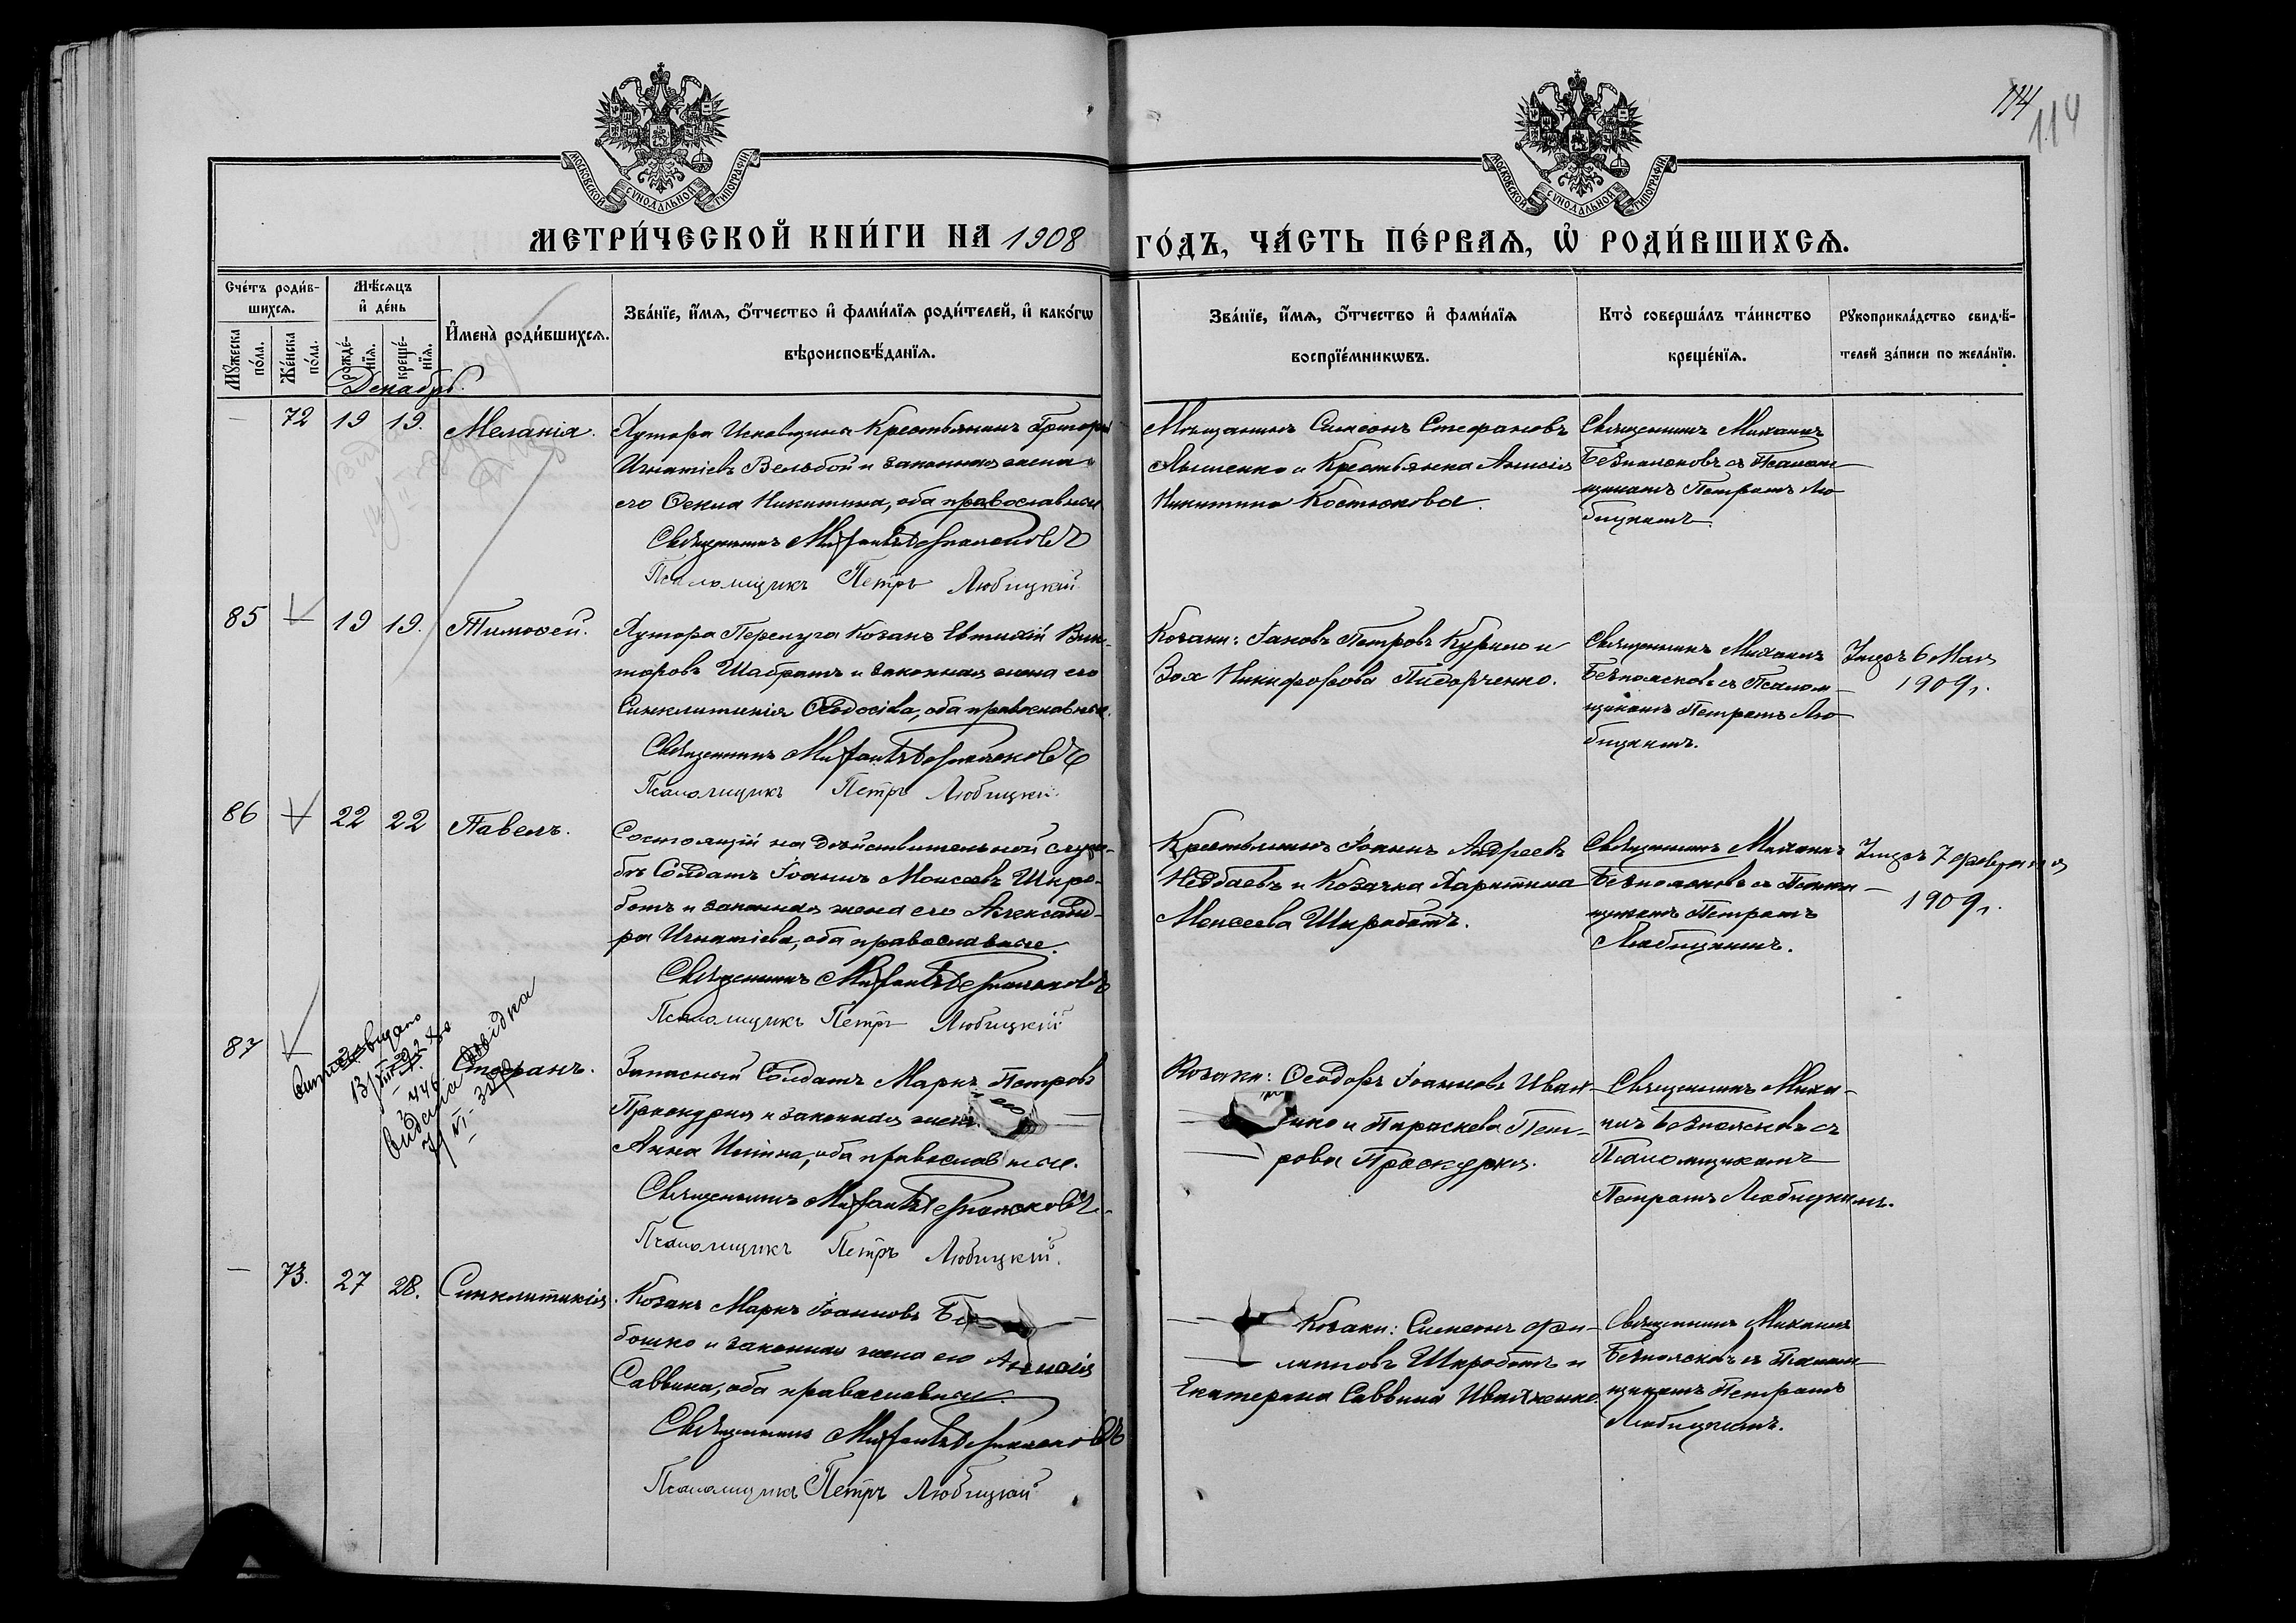 114
114
МОСКОВСКОЙ СУНОДАЛЬНОЙ ТИПОГРАФІИ
МОСКОВСКОЙ СУНОДАЛЬНОЙ ТИПОГРАФІИ
МЕТРИ́ЧЕСКОЙ КНИ́ГИ НА 1908
ГО́ДЪ, ЧА́СТЬ ПЕ́РВАѦ, Ѡ҆ РОДИ́ВШИХСѦ.
Сче́тъ роди́в-
шихсѧ.
Мѣ́сѧцъ
и҆ де́нь
Мꙋ́жеска
по́ла.
Же́нска
по́ла.
рожде́-
нїѧ.
креще́-
нїѧ.
И҆мена̀ роди́вшихсѧ.
Зва́нїе, и҆́мѧ, ѻ҆́тчество и҆ фами́лїѧ роди́телей, и҆ како́гѡ
вѣроисповѣ́данїѧ.
Зва́нїе, и҆́мѧ, ѻ҆́тчество и҆ фами́лїѧ
воспрїе́мникѡвъ.
Кто̀ соверша́лъ та́инство
креще́нїѧ.
Рꙋкоприкла́дство свидѣ́-
телей за́писи по жела́нїю.
Декабрь.
— 72 19 19. Меланія.
Хутора Исковщина Крестьянинъ Григорій
Игнатіевъ Вельбой и законная жена
его Ѳекла Никитина, оба православные
Священникъ Михаилъ Безпалсковъ
Псаломщикъ Петръ Любицкій
Мѣщанинъ Симеонъ Стефановъ
и Крестьянка Анисія
Никитина Костюкова.
Священникъ Михаилъ
съ Псалом-
щикомъ Петромъ Лю-
бицкимъ
85 19 19. Тимоѳей.
Хутора Перелуга Козакъ Евтихій Вик-
торовъ Шабратъ и законная жена его
Синклитикія Ѳеодосіева, оба православные.
Священникъ
Псаломщикъ Петръ Любицкій.
Козаки: Іаковъ Петровъ Курило и
Зоя Никифорова Пидорченко.
Священникъ Михаилъ
съ Псалом-
щикомъ Петромъ Лю-
бицкимъ.
Умеръ 6 Мая
1909 г.
86 22 22 Павелъ.
Состоящій на дѣйствительной служ-
бѣ Солдатъ Іоаннъ Моисеевъ Шкро-
ботъ и законная жена его Александ-
ра Игнатіева, оба православные.
Священникъ
Псаломщикъ Петръ Любицкій
Крестьянинъ Іоаннъ Андреевъ
Недбаевъ и Козачка Харитина
Моисеева Шкроботъ.
Священникъ Михаилъ
съ Псалом-
щикомъ Петромъ
Любицкимъ.
Умеръ 7 февраля
1909 г.
87 Стефанъ.
видано
446
видана довідка
Запасный Солдатъ Маркъ Петровъ
Проскурня и законная жена его
Анна Ильина, оба православные.
Священникъ
Псаломщикъ Петръ Любицкій.
Козаки: Ѳеодоръ Іоанновъ Иван-
и Параскева Пет-
рова Проскурня.
Священникъ Миха-
илъ съ
Псаломщикомъ
Петромъ Любицкимъ.
— 73. 27 28. Синклитикія.
Козакъ Маркъ Іоанновъ
бошко и законная жена его Анисія
Саввина, оба православные.
Священникъ
Псаломщикъ Петръ Любицкій
Козаки: Симеонъ Фи-
липповъ Шкроботъ и
Екатерина Саввина Иващенко.
Священникъ Михаилъ
съ Псалом-
щикомъ Петромъ
Любицкимъ.